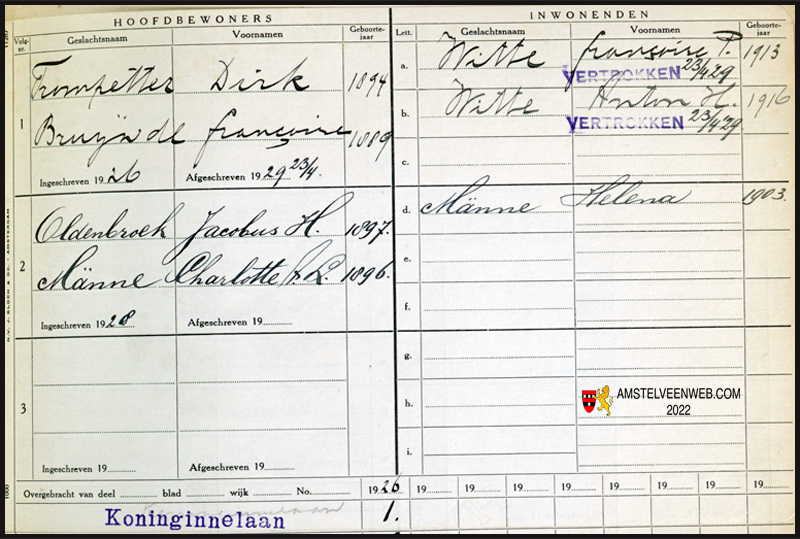 HOOFDBEWONERS
Volg-nr. Geslachtsnaam Voornamen Geboorte-jaar
1
Trompetter Dirk 1894
Bruijn de françoise 1889
Ingeschreven 1926 Afgeschreven 1929 23/4.
2
Oldenbroek Jacobus H. 1897.
Männe Charlotte L. 1896.
Ingeschreven 1928 Afgeschreven 19
3
Ingeschreven 19 Afgeschreven 19
INWONENDEN
Lett. Geslachtsnaam Voornamen Geboorte-jaar
a. Witte françoise P. 1913
VERTROKKEN 23/4 29
b. Witte Anton H. 1916
VERTROKKEN 23/4 29
c.
d. Männe Helena 1903.
e.
f.
g.
h. AMSTELVEENWEB.COM
2022
i.
Overgebracht van deel blad wijk No. 1926 19 19 19 19 19 19 19 19
Koninginnelaan 1.